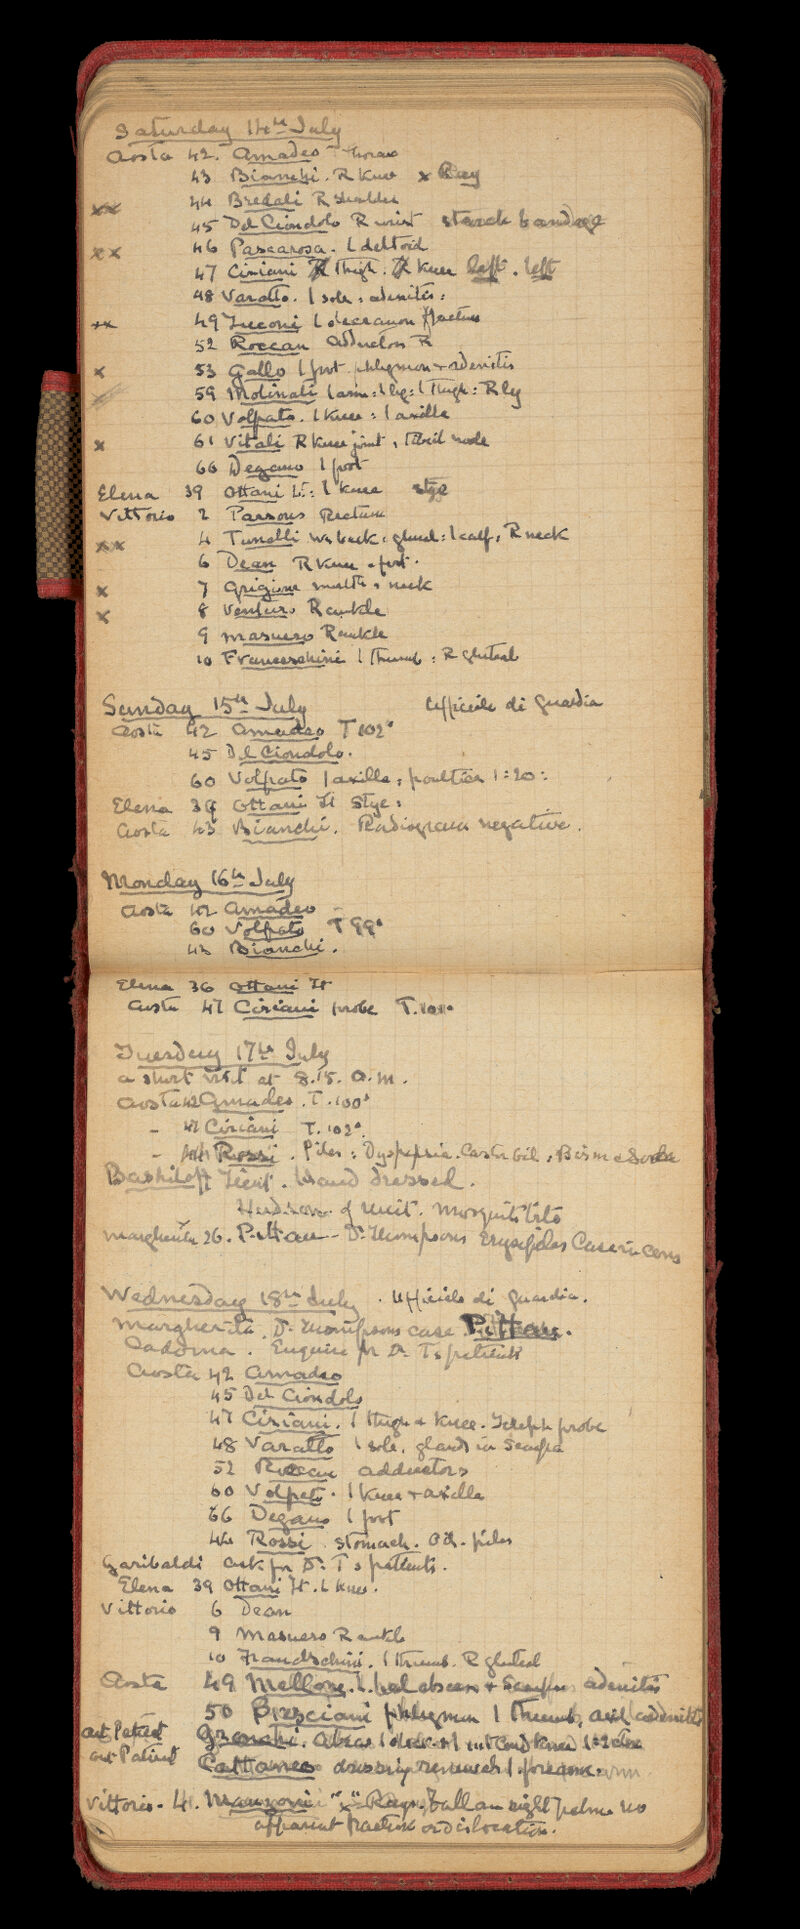 Saturday 14th July
Aosta 42. Amadeo Thorax
43 Bianchi. R Knee x Ray
xx 44 Bredali R Shoulder
45 Del Ciondolo R wrist starch bandage
xx 46 Pascarosa. l deltoid
47 Ciriani thigh. knee left. left
48 Varatto. l sole: adenitis:
xx 49 Zucconi l olecranon fracture
52 Roccan Adductors R
x 53 Gallo l foot phlegmon + adenitis
59 Molinati l arm: l leg: l thigh: R leg
60 Volpato. l Knee: l axilla
x 61 Vitali R Knee joint, tibial node
66 Degano l foot
Elena 39 Ottani Lt: l knee stye
Vittorio 2 Parsons Rectum
xx 4 Tunelli back: gland: l calf, R neck
6 Dean R Knee. foot.
x 7 Grigioni neck
x 8 Venturo R ankle
9 Masuero R ankle
10 Franceschini l Thumb: R gluteal
Sunday 15th July Ufficiale di Guardia
Aosta 42 Amadeo T 102°
45 Del Ciondolo.
60 Volpato l axilla; poultice 1:20:
Elena 39 Ottani Lt Stye:
Aosta 43 Bianchi. Radiogram negative.
Monday 16th July
Aosta 42 Amadeo
60 Volpato T 99°
43 Bianchi.
Elena 36 Ottani Lt
Aosta 47 Ciriani probe T. 101°
Tuesday 17th July
a short visit at 8.15. a.m.
Aosta 42 Amadeo. T. 100°
- 47 Ciriani T. 102°.
- 44 Rossi. Piles: Dyspepsia. Castor Oil, Bism & Soda
Bashiloff Lieut. Hand dressed.
Henderson of Unit. Mosquito bite
Margherita 26. Pittau - Dr. Thompsons Erysipelas Case in
Wednesday 18th July. Ufficiale di Guardia.
Margherita. Dr. Thompsons case. Pittau.
Cadorna. Enquire for Dr. T's patients
Aosta 42 Amadeo
45 Del Ciondolo
47 Ciriani. l thigh & knee. Teleph probe
48 Varatto l sole. glands in Scarpa
52 Roccan adductors
60 Volpato. l Knee + axilla
66 Degano l foot
44 Rossi stomach. Oil. piles
Garibaldi ask for Dr. T's patients.
Elena 39 Ottani Lt. L knee.
Vittorio 6 Dean
9 Masuero R ankle
10 Franceschini. l thumb. R gluteal
Aosta 49 Mellone. l. heel abscess + Scarpas adenitis
50 Bresciani phlegmon l thumb, adenitis
out Patient
out Patient Cattaneo dressing renewed l. forearm
Vittorio. 4. Manzoni "x" Ray. fall on right palm no
apparent fracture or dislocation.